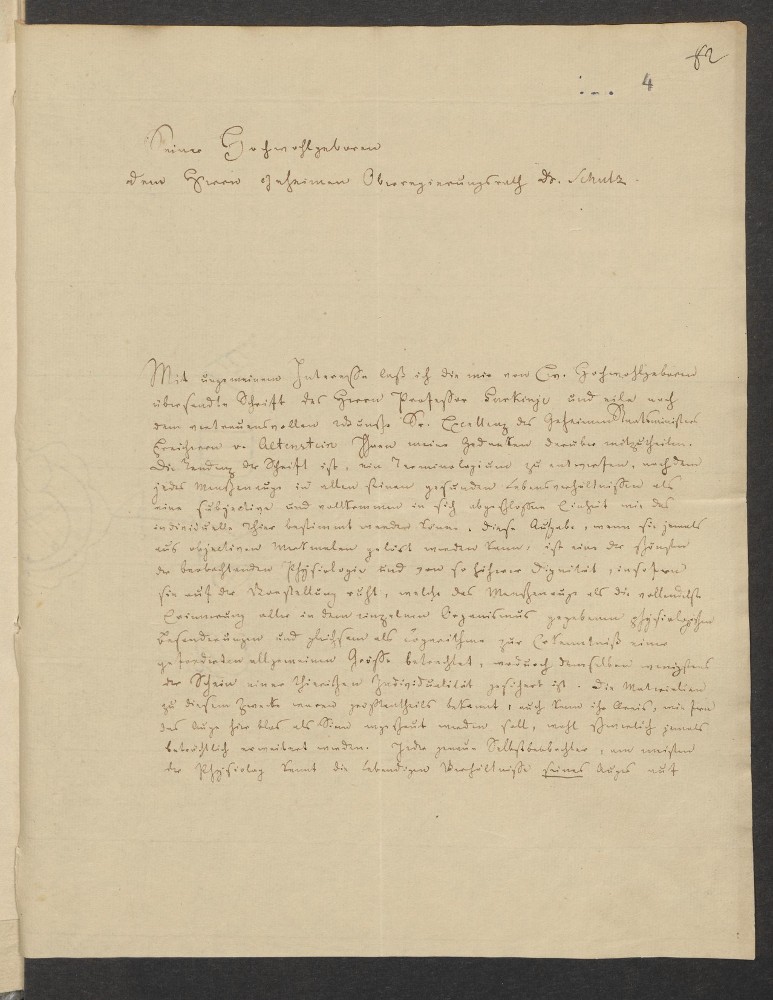 82
4
Seiner Hochwohlgeboren
dem Herrn Geheimen Oberregierungsrath Dr. Schulz.
Mit ungemeinem Interesse laß ich die mir von Ew. Hochwohlgeboren
übersandte Schrift des Herrn Professor Purkinje und eile nach
dem vertrauensvollen Wunsche Sr. Excellenz des Geheimen Staatsministers
Freiherrn v. Altenstein Ihnen meine Gedanken darüber mitzutheilen.
Die Tendenz der Schrift ist, ein Terminologium zu entwerfen, nach dem
jedes Menschenauge in allen seinen gesunden Lebensverhältnissen als
eine subjective und vollkommen in sich abgeschlossene Einheit wie das
individuelle Thier bestimmt werden könne. Diese Aufgabe, wenn sie jemals
aus objectiven Merkmalen gelöst werden kann, ist eine der schönsten
der beobachtenden Physiologie und von so höherer Dignität, insofern
sie auf der Vorstellung ruht, welche das Menschenauge als die vollendetste
Erinnerung aller in dem einzelnen Organismus gegebenen physiologischen
Besonderungen und gleichsam als Logarithme zur Erkenntniß einer
geforderten allgemeinen Grösse betrachtet, wodurch demselben wenigstens
der Schein einer thierischen Individualität gesichert ist. Die Materialien
zu diesem Zwecke waren größtentheils bekannt, auch kann ihr Kreis, wie fern
das Auge hier blos als Sinn angeschaut werden soll, wohl schwerlich jemals
beträchtlich erweitert werden. Jeder genaue Selbstbeobachter, am meisten
der Physiolog kennt die lebendigen Verhältnisse seines Auges auf